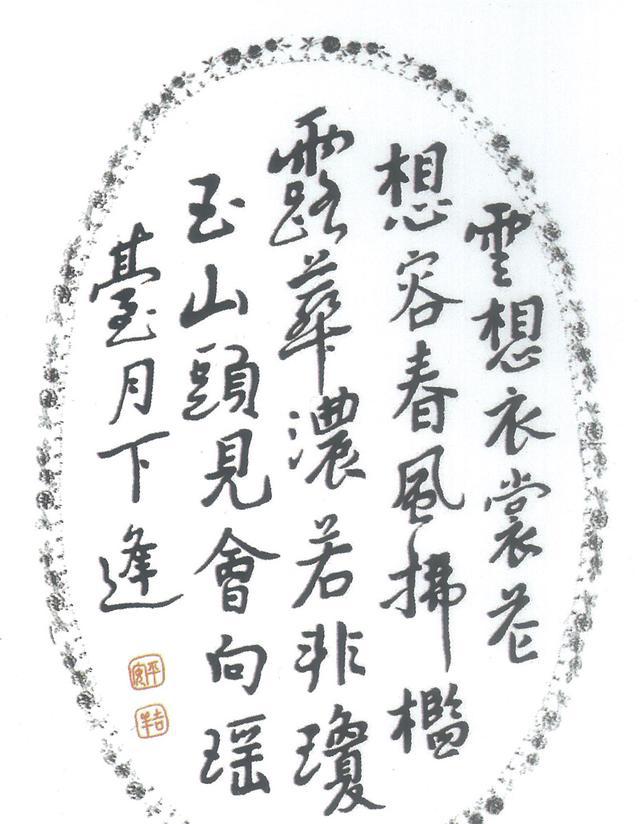 雲想衣裳花
想容春風拂檻
露華濃若非瓊
玉山頭見會向瑶
臺月下逢
平安
吉羊